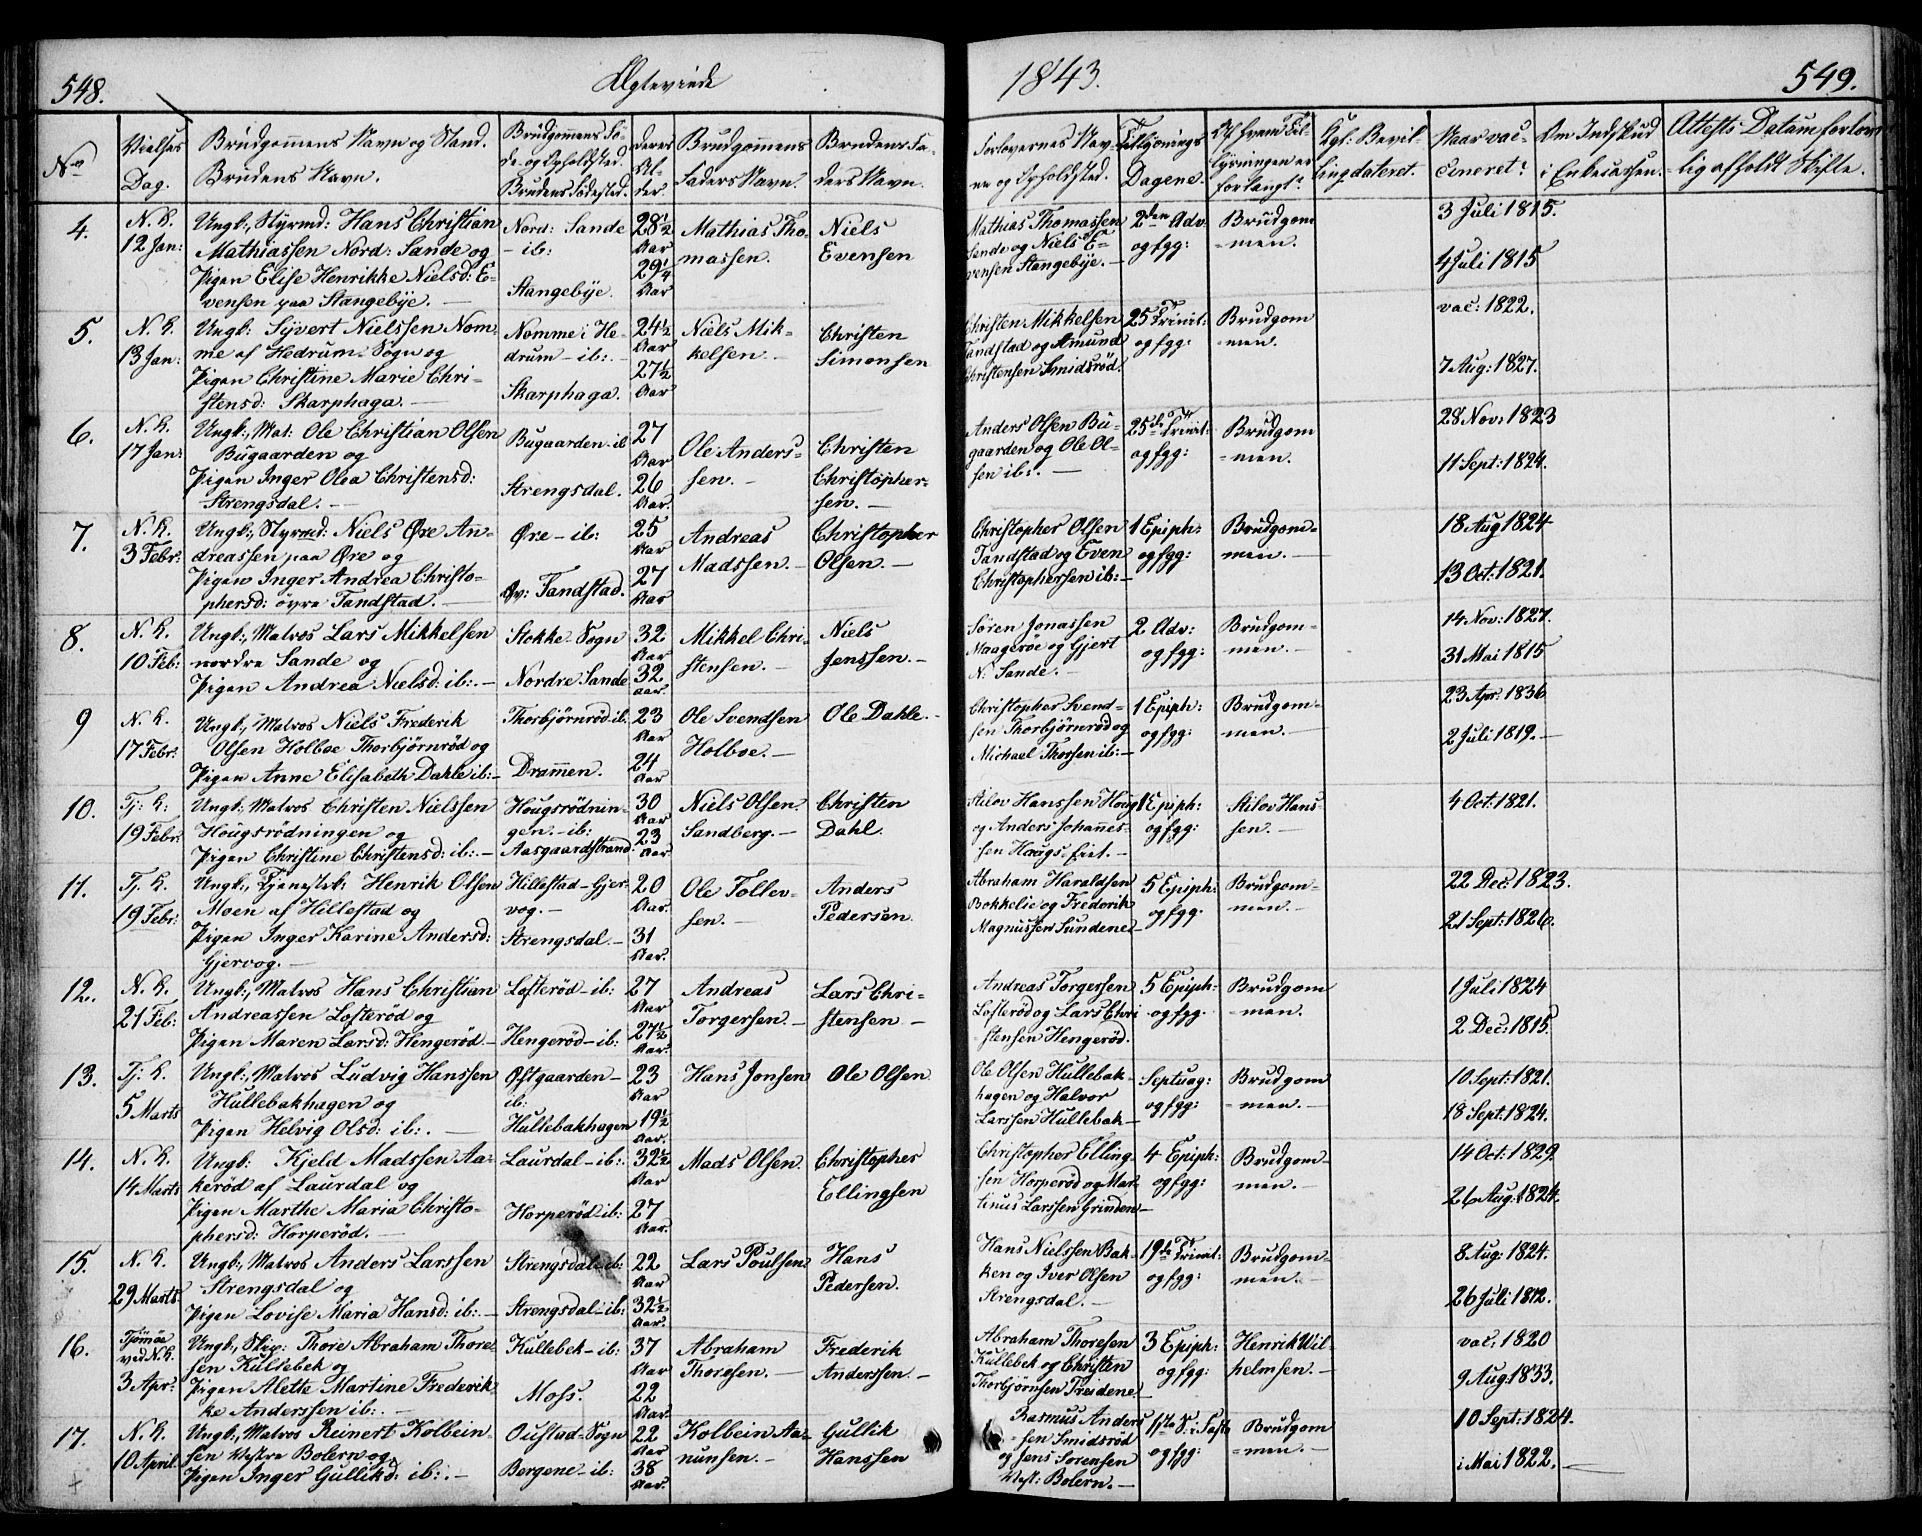 548.
Ægteviede
1843.
549.
No
Vielses Dag.
Brudgommens Navn og Stand.
Brudens Navn.
Brudgommens Fø-
de- og Opholdsted.
Brudens Fødested.
Deres
Al-
der.
Brudgommens
Faders Navn.
Brudens Fa-
ders Navn.
Forlovernes Nav-
ne og Opholdsted.
Tillysnings
Dagene.
Af hvem Til-
lysningen er
forlangt.
Kgl: Bevil-
ling dateret.
Naar vac-
cineret.
Om Indskud
i Enkecassen.
Attests Datum for lov-
lig afholdt Skifte.
4.
N. K.
12 Jan:
Ungk:, Styrmd: Hans Christian
Mathiassen Nord: Sande og
Pigen Elise Henrikke Nielsd: E-
vensen paa Stangebye. —
Nord: Sande
- ib:
Stangebye.
28½
Aar
29¼
Aar
Mathias Tho-
massen.
Niels
Evensen
Mathias Thomassen
Sande og Niels E-
vensen Stangebye. —
2den Adv:
og fgg:
Brudgom
-men.
3 Juli 1815.
4 Juli 1815
5.
N. K.
13 Jan:
Ungk: Syvert Nielssen Nom-
me af Hedrum Sogn og
Pigen Christine Marie Chri-
stensd: Skarphaga. —
Nomme i He-
drum - ib: -
Skarphaga.
24½
Aar
27½
Aar
Niels Mik-
kelsen. -
Christen
Simonsen
Christen Mikkelsen
Tandstad og Amund
Christensen Smidsrød.
25 Trinit:
og fgg:
Brudgom
-men.
vac: 1822.
7 Aug: 1827.
6.
N. K.
17 Jan:
Ungk:, Mat: Ole Christian Olsen
Bugaarden og
Pigen Inger Olea Christensd:
Strengsdal. —
Bugaarden - ib
Strengsdal.
27
Aar
26
Aar.
Ole Anders-
sen. -
Christen
Christopher-
sen. -
Anders Olsen Bu-
gaarden og Ole Ol-
sen ib:. —
25de Trinit:
og fgg:
Brudgom
-men.
28 Nov: 1823
11 Sept: 1824.
7.
N. K.
3 Febr:
Ungk:, Styrmd: Niels Øre An-
dreassen paa Øre og
Pigen Inger Andrea Christo-
phersd: øvre Tandstad. —
Øre - ib:
Øv: Tandstad.
25
Aar
27
Aar
Andreas
Madssen. -
Christopher
Olsen. -
Christopher Olsen
Tandstad og Even
Christophersen ib: -
1 Epiph:
og fgg:
Brudgom-
men. -
18 Aug 1824
13 Oct: 1821.
8.
N. K.
10 Feb:
Ungk:, Matros Lars Mikkelsen
nordre Sande og
Pigen Andrea Nielsd: ib:. -
Stokke - Sogn
Nordre Sande
32
Aar
32
Aar
Mikkel Chri-
stensen. -
Niels
Jenssen. -
Søren Jonassen
Maagerøe og Gjert
N: Sande. -
2 Adv:
og fgg:
Brudgom-
men. -
14 Nov: 1827.
31 Mai 1815
9
N. K.
17 Febr:
Ungk:, Matros Niels Frederik
Olsen Holboe Thorbjørnrød og
Pigen Anne Elisabeth Dahle ib: -
Thorbjørnrød ib.
Drammen.
23
Aar
24
Aar
Ole Svendsen
Holboe. -
Ole Dahle. -
Christopher Svend-
sen Thorbjørnrød og
Michael Thorsen ib: -
1 Epiph:
og fgg:
Brudgom-
men. -
23 Apr: 1836
2 Juli 1819. -
10.
Tj: K:
19 Febr:
Ungk:, Matros Christen Nielssen
Hougsrødningen og
Pigen Christine Christensd: ib: -
Hougsrødnin-
gen. - ib:
Aasgaardstrand.
30
Aar
23
Aar
Niels Olsen
Sandberg. -
Christen
Dahl.
Stilov Hanssen Houg
og Anders Johannes-
sen Hougs-Eiet. -
1 Epiph:
og fgg:
Stilov Hans-
sen. -
4 Oct: 1821.
11.
Tj. K.
19 Febr:
Ungk:, Tjenestek: Henrik Olsen
Moen af Hillestad og
Pigen Inger Karine Andersd:
Gjervog. -
Hillestad - Gjer-
vog. -
Strengsdal. -
20
Aar.
31
Aar.
Ole Tollev-
sen. -
Anders
Pedersen
Abraham Haraldsen
Bokkelie og Frederik
Magnussen Sundene -
5 Epiph:
og fgg.
Brudgom-
men. -
22 Dec: 1823.
21 Sept: 1826.
12.
N. K.
21 Feb:
Ungk:, Matros Hans Christian
Andreassen Lofterød og
Pigen Maren Larsd: Hengerød -
Lofterød - ib:
Hengerød - ib:
27
Aar
27½
Aar.
Andreas
Torgersen. -
Lars Chri-
stensen -
Andreas Torgersen
Lofterød og Lars Chri
stensen Hengerød.
5 Epiph:
og fgg.
Brudgom
-men.
1 Juli 1824
2 Dec: 1815.
13.
Tj. K.
5 Marts
Ungk:, Matros Ludvig Hanssen
Hullebakhagen og
Pigen Helvig Olsd: ib:. —
Østgaarden -
ib:
Hullebakhagen
23
Aar
19½
Aar.
Hans Jonsen
Ole Olsen
Ole Olsen Hullebak-
hagen og Halvor
Larssen Hullebak -
Septuag:
og fgg:
Brudgom
-men. -
10 Sept: 1821.
18 Sept: 1824.
14.
N. K.
14 Marts
Ungk: Kjeld Madssen Aa-
kerød af Laurdal og
Pigen Marthe Maria Christo-
phersd: Horperød. -
Laurdal - ib:
Horperød - ib:
32½
Aar
27
Aar.
Mads Olsen.
Christopher
Ellingsen
Christopher Elling-
sen Horperød og Mar-
tinus Larssen Grinden -
4 Epiph:
og fgg:
Brudgom-
men. -
14 Oct: 1829
26 Aug: 1824.
15.
N. K.
29 Marts
Ungk:, Matros Anders Larssen
Strengsdal og
Pigen Lovise Maria Hansd: ib:. -
Strengsdal - ib:
Strengsdal - ib:
22
Aar
32½
Aar.
Lars Poulsen
Hans
Pedersen.
Hans Nielssen Bak-
ken og Iver Olsen
Strengsdal. -
19de Trinit:
og fgg:
Brudgom-
men. -
8 Aug: 1824.
26 Juli 1812.
16.
Tjømøe
ved N.K.
3 Apr:
Ungk:, Skip: Thore Abraham Thore-
sen Kullebek og
Pigen Alette Martine Frederik-
ke Anderssen ib:. -
Kullebek - ib:
Moss.
37
Aar
22
Aar.
Abraham
Thoresen. -
Frederik
Anderssen. -
Abraham Thoresen
Kullebek og Christen
Thorbjørnsen Treidene -
3 Epiph:
og fgg:
Henrik Wil-
helmsen. -
vac: 1820
9 Aug: 1833.
17.
N. K.
10 April
Ungk:, Matros Reinert Kolbein-
sen Vestre Bolern og
Pigen Inger Gullikd: ib:. -
Oustad - Sogn
Bergene - ib:
22
Aar
38
Aar.
Kolbein Aa-
nunsen. -
Gullik
Hanssen
Rasmus Anders
sen Smidsrød
og Jens Sørensen
Vest: Bolern. -
1ste S: i Faste
og fgg:
Brudgom
-men. -
10 Sept: 1824.
i Mai 1822. -